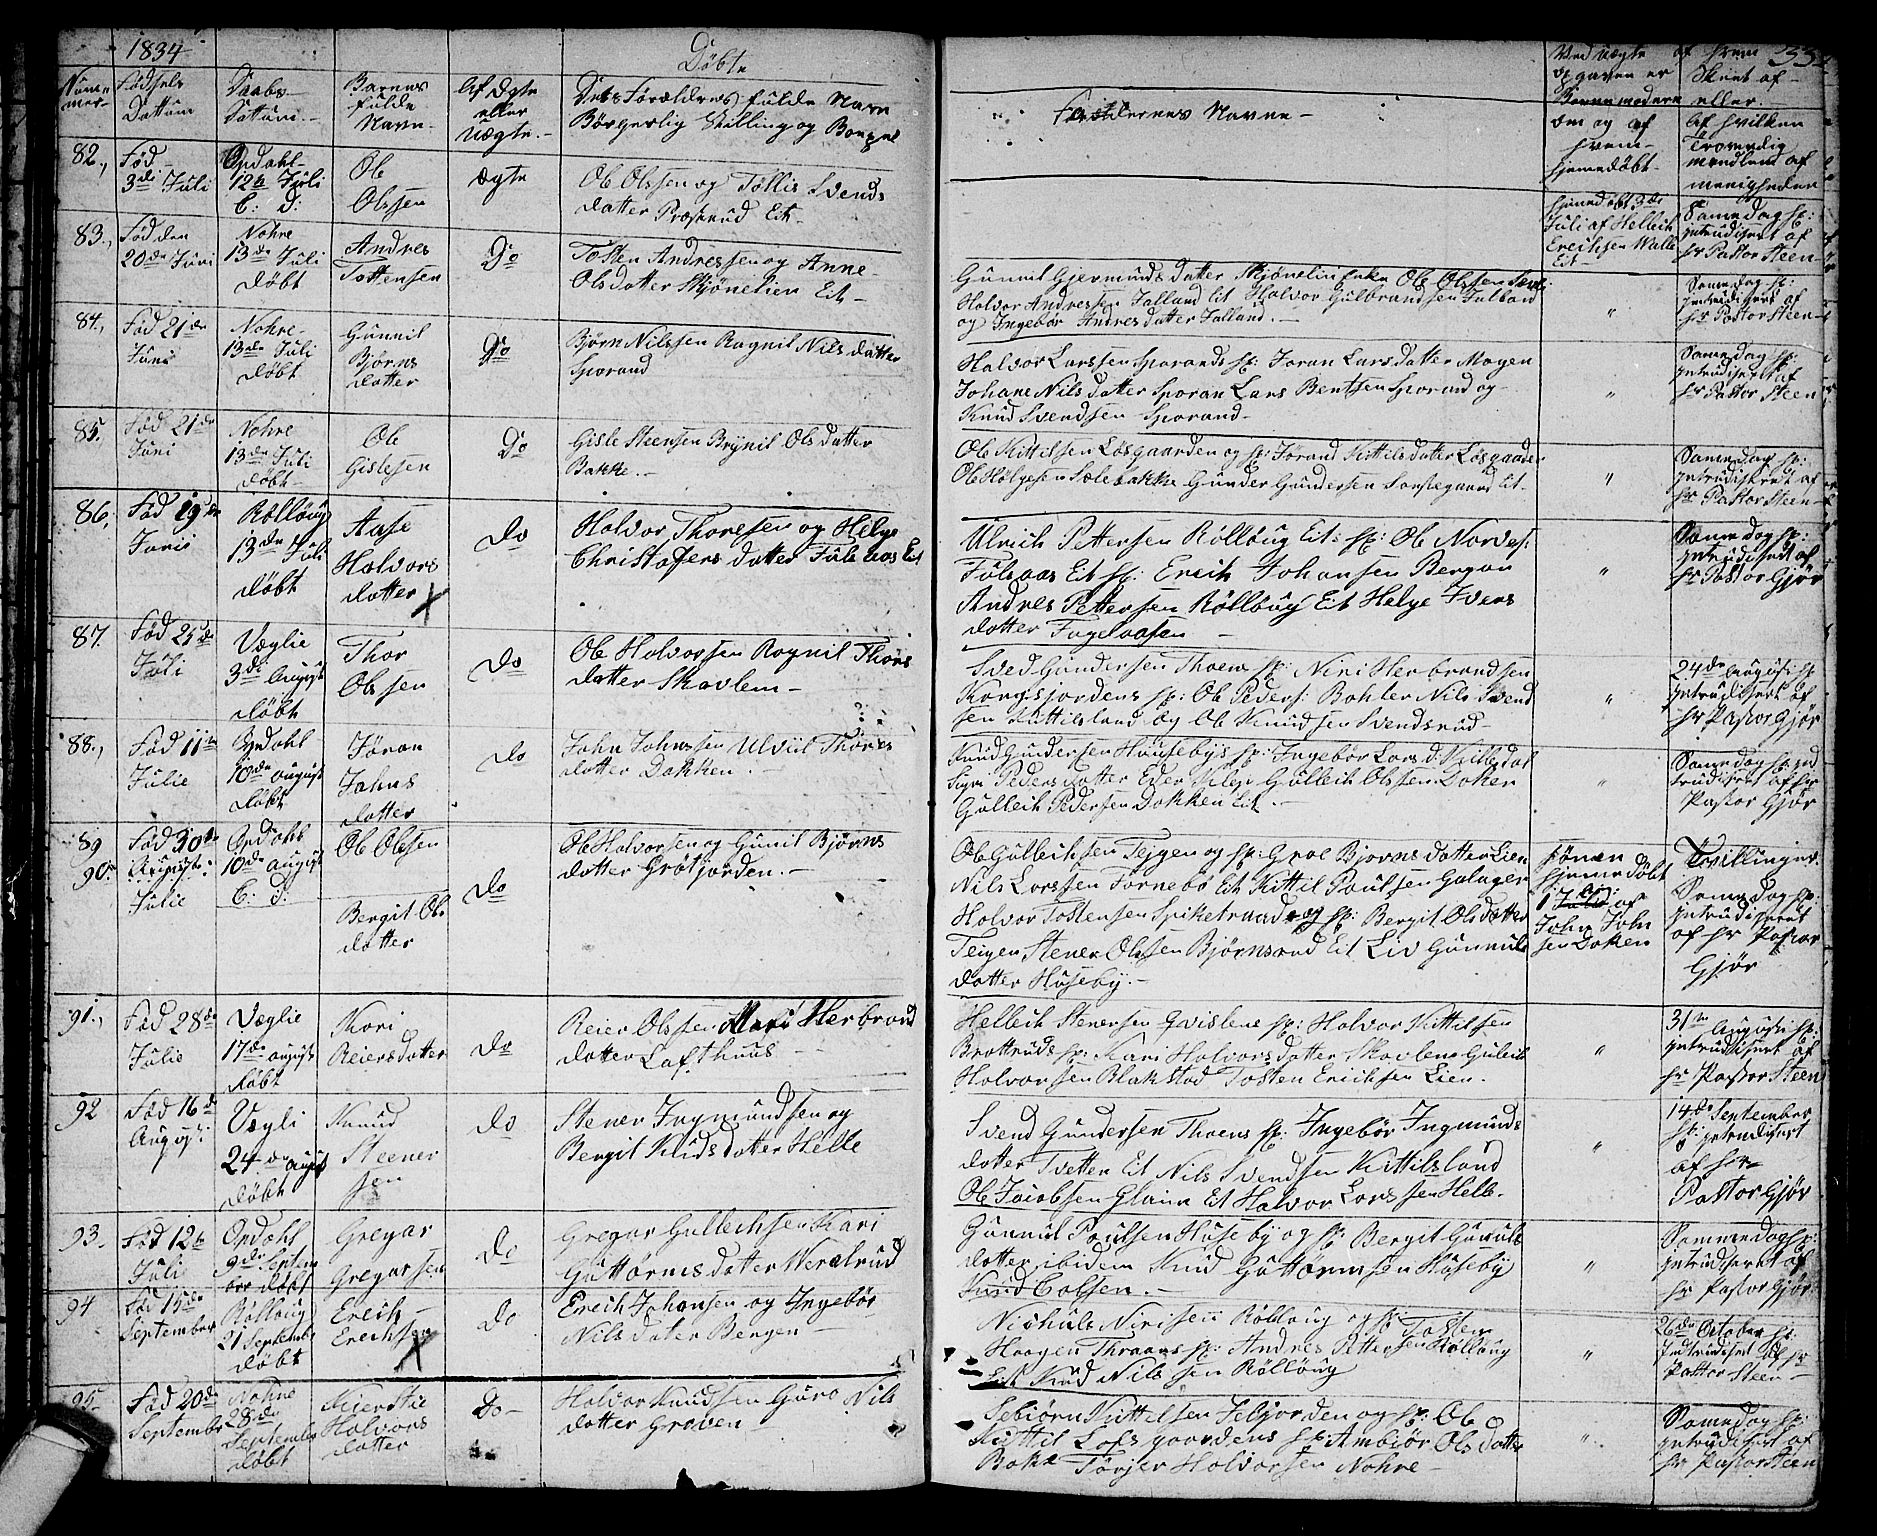 1834
Døbte
Num-
mer.
Fødsels
Dattum
Daabs-
Dattum.-
Barnets
fulde
Navn-
Af Ægte
eller
Uægte.-
Forældrenes fulde Navn
Børgerlig Stilling og Bopæl
Faddernes Navne-
Ved Uægte
Barnemoderen
om og af
hvem
hjemedøbt-
af hvem
eller.-
Af hvilken
Troværdig
menigheden
82.,
Fød
3di Juli
Opdahl-
12te Juli
C: D:
Ole
Olssen
Ægte
Ole Olssen og Tøllis Svends
datter Prosterud Eit-
hjemedøbt 3de
Juli af Helleik
Erichsen Walle
Eit-
Same dag sp:
introdusert af
hr Pastor Steen
83.,
Fød den
20de Juni
Nohre
13de Juli
døbt
Andres
Tostensen
Do
Tosten Andressen og Anne
Olsdatter Skjønelien Eit-
Gunnil Gjermundsdatter Skjønelin Enke Ole Olssen
Halvor Andressen Falland Eit Halvor Gulbrandsen Falland
og Ingebør Andresdatter Falland.-
"
Same dag sp:
introdusert af
hr Pastor Steen-
84.,
Fød 21de
Juni
Nohre-
13de Juli
døbt
Gunnil
Bjørns
datter
Do
Bjørn Nilssen Ragnil Nilsdatter
Sporand
Halvor Larssen Sporands sp: Joran Larsdatter Mogen
Johane Nilsdatter Sporan Lars Bentsen Sporand og
Knud Svendsen Sporand-
"
Same dag sp:
introdusert af
hr Pastor Steen
85.
Fød 21de
Juni
Nohre
13de Juli
døbt-
Ole
Gislesen
Do
Gisle Steensen Brynil Olsdatter
Bakke.-
Ole Kittilsen Løsgaarden og sp: Jørand Kittilsdatter Løsgaarden
Ole Helgesen Solebakke Gunder Gundersen Eit-
"
Same dag sp:
introdusert af
hr Pastor Steen-
86,
Fød 19de
Junii
Rølloug
13de Juli
døbt
Aase
Halvors
datter X
Do
Halvor Thoresen og Helge
Christofersdatter Fulsaas Eit
Ulrich Pettersen Rølloug Eit: sp: Ole
Fulsaas Eit sp: Erich Johansen Bergan
Andres Pettersen Rølloug Eit Helge Ivers
datter Fugelaasen -
"
Same dag sp:
introdusert af
hr Pastor Gjør
87.
Fød 25de
Juli
Væglie
3di August
døbt
Thor
Olssen
Do
Ole Halvorssen Ragnil Thors
datter Skavlem-
Sved Gundersen Thoens sp: Niri Herbrandsen
Kongsjordens sp: Ole Peders: Bohler Nils Svend
sen Kittilsland og Ole Knudsen Svendsrud-
"
24de August sp
introdusert af
hr Pastor Gjør
88.,
Fød 11te
Julie
Opdahl-
10de august
døbt
Jøran
Johns
datter
Do
John Johnssen Ulviil Thores
datter Dokken.-
Knud Gundersen Housebys sp: Ingebør Lars d:
Sigri Pedersdatter Gulleik Olssen Doken
Gulleik Pedersen Dokken Eit.-
"
Same dag sp: in
trudisert af hr
Pastor Gjør
89
90.
Fød 30te
August:
Julie
Opdahl
10de august
C: d:
Ole Olssen
Bergit Ols
datter
Do
Ole Halvorsen og Gunil Bjørns
datter Grøtjorden.-
Ole Gulleichsen Teigen og sp: Groe Bjørnsdatter Lien
Nils Larssen Førnebø Eit Kittil Paulsen Golager
Halvor Tostensen Spiketraad og sp: Bergit Olsdatter
Teigen Stener Olssen Bjørnsrud Eit Liv Gunnuls
datter Huseby.-
hjemedøbt
1 Juli af
John John
sen Doken
Tvillinger.
Same dag sp:
introdusert
af hr Pastor
Gjør
91.,
Fød 28de
Julie
Væglie
17de august
døbt
Kari
Reiersdatter
Do
Reier Olssen Mari Herbrand
datter Lofthuus -
Helleik Stenersen Qvislene sp: Halvor Kittilsen
Brottruds sp: Kari Halvorsdatter Skavlens Guleik
Halvorsen Blakstad Tosten Erichsen Lien.
"
31te
August sp:
introdusert af
hr Pastor Steen
92
Fød 16de
August
Vegli
24de august
døbt
Knud
Steener
sen
Do
Stener Ingmundsen og
Bergit Knudsdatter Helle
Svend Gundersen Thoens sp: Ingebør Ingmunds
datter Tvetten Eit Nils Svendsen Kittilsland
Ole Jacobsen Glaim Eit Halvor Larssen Helle.
"
14de September
sp: introdusert
af hr
Pastor Gjør
93.
Fød 12te
Julii
Opdahl
9de Septem
ber døbt
Gregar
Gregarssen
Do
Gregar Gulleichsen Kari
Guttormsdatter Wereldrud
Gunnul Paulsen Huseby og sp: Bergit Gunnuls
datter ibidem Knud Guttormsen Huseby
Knud Colsen.-
"
Sammedag sp:
introdusert af
hr Pastor Gjør
94
Fød 15de
September
Rølloug
21 Septembr
døbt
Erich-
Erichsen
X
Do
Erich Johansen og Ingebør
Nilsdatter Bergen-
Nichuls Nirisen Rølloug og sp: Tosten
Haagen Thraans sp: Andres Pettersen Rølloug
Eit Knud Nilssen Rølloug
"
26de October sp:
introdusert af hr
Pastor Steen-
95
Fød 20de
September
Nohre
28de
September
døbt
Kierstie
Halvors
datter
Do-
Halvor Knudsen Guro Nils
datter Graven-
Sebiørn Kittelsen og sp: Ole
Kittil Løfsgaardens sp: Ambiør Olsdatter
Bakk Torjer Halvorsen Nohre-
"
Same dag sp:
introdusert af
hr Pastor Steen